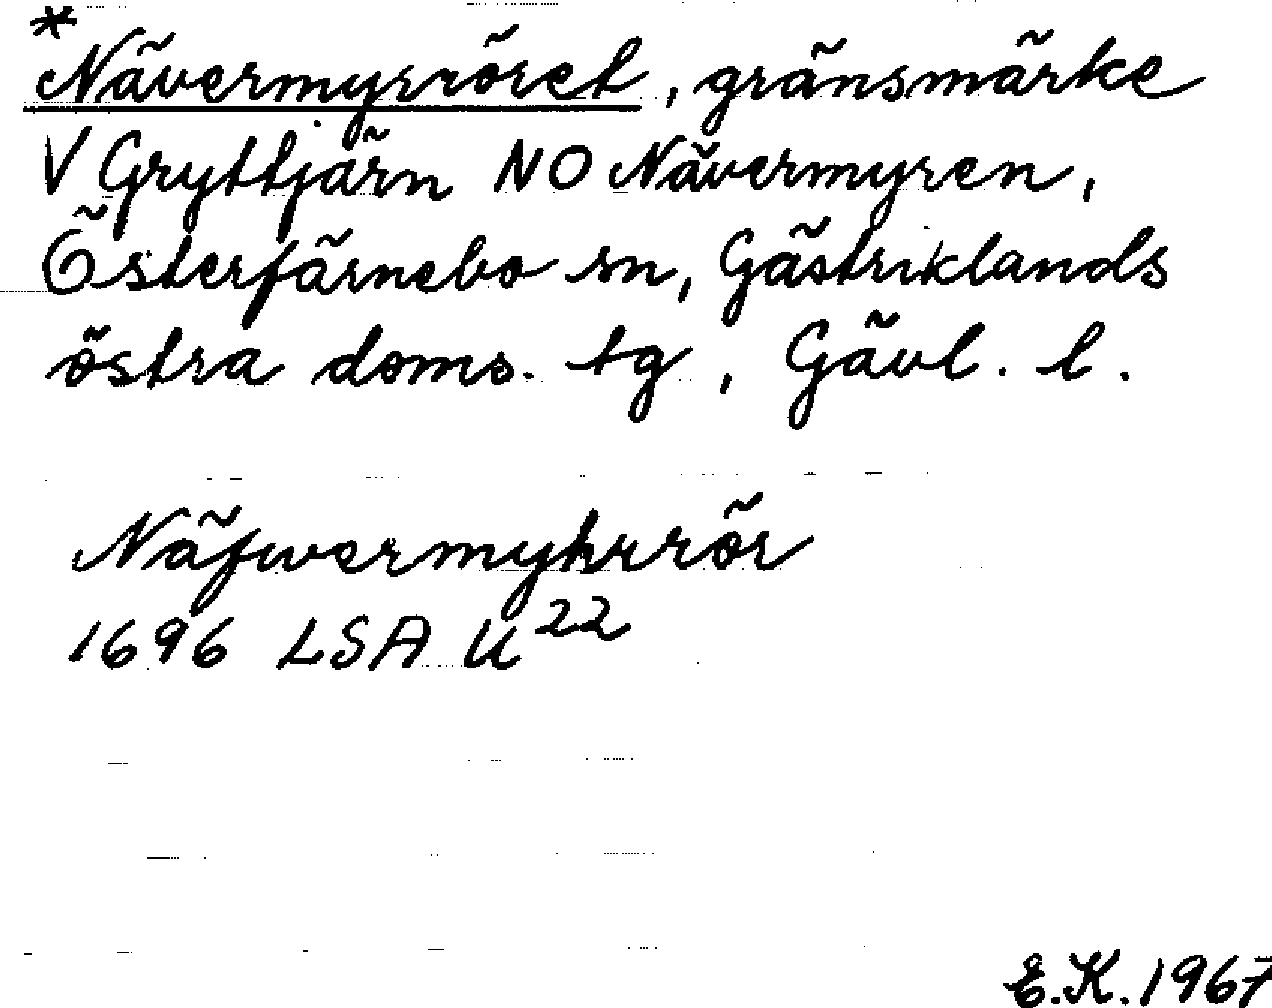 *Nävermyrröret, gränsmärke
V Gryttjärn NO Nävermyren,
Österfärnebo sn, Gästriklands
östra doms. tg, Gävl. l.
Näfwermyhrrör
1696 LSA U²²
E.K. 1967